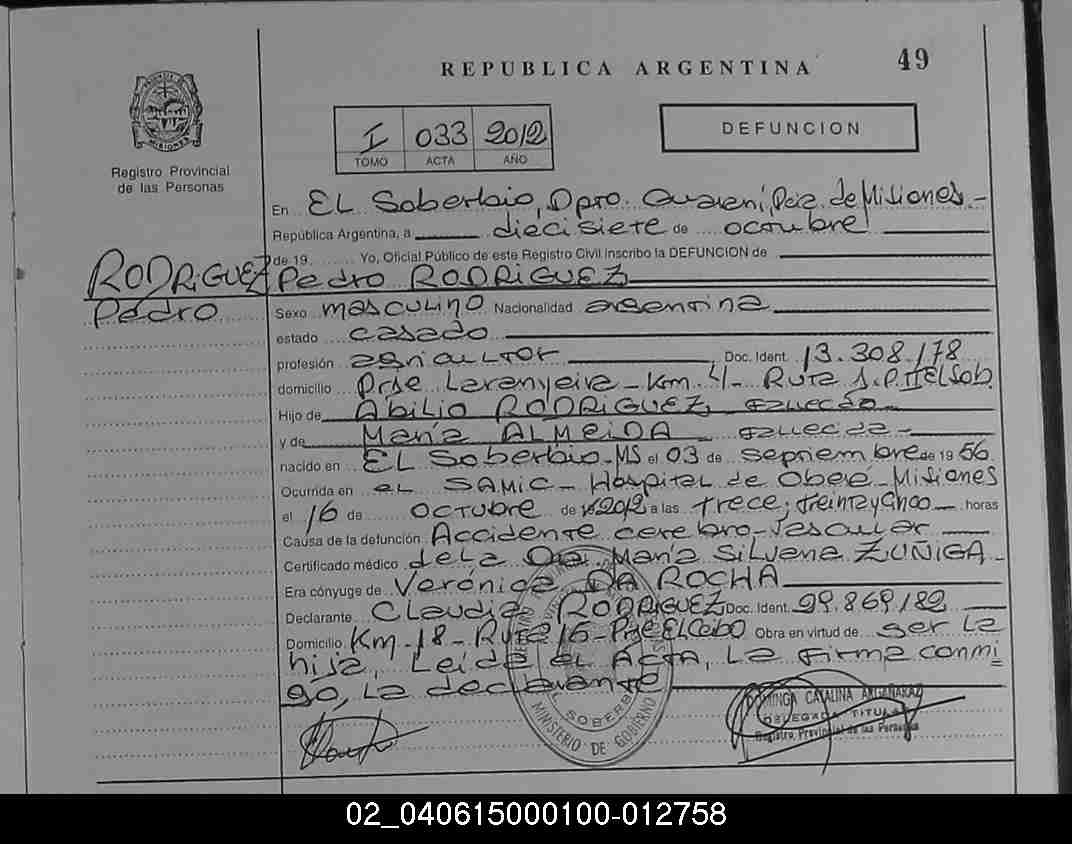 REPUBLICA ARGENTINA
49
PROVINCIA DE MISIONES
Registro Provincial
de las Personas
I 033 2012
TOMO ACTA AÑO
DEFUNCION
En EL Soberbio, Dpto. Guarani, Pcia. de Misiones -
República Argentina, a diecisiete de octubre
de 19 Yo, Oficial Público de este Registro Civil inscribo la DEFUNCION de
RODRiGUEZ Pedro RODRiGUEZ
Pedro
Sexo masculino Nacionalidad argentina
estado casado
profesión agricultor Doc. Ident. 13.308.178
domicilio Prje Laranyeira - Km. 4 - RUTA El Sob.
Hijo de Abilio RODRiGUEZ, fallecido -
y de María ALMEiDA fallecida -
nacido en EL Soberbio - MS el 03 de septiembre de 19 56
Ocurrida en el SAMIC - Hospital de Obera - Misiones
el 16 de octubre de 2012 a las trece; treinta y cinco horas
Causa de la defunción Accidente cerebro-vascular
Certificado médico de la Dra. María Silvana ZUÑIGA -
Era cónyuge de Verónica DA ROCHA
Declarante Claudia RODRiGUEZ Doc. Ident. 29.869.182
Domicilio Km. 18 - Ruta - Prje El Ceibo Obra en virtud de ser la
hija, Leida el ACTA, la firma conmi
go, la declarante
EL SOBERBIO
MINISTERIO DE GOBIERNO
DOMINGA CATALINA
DELEGADA TITULAR
Registro Provincial de las Personas
02_040615000100-012758